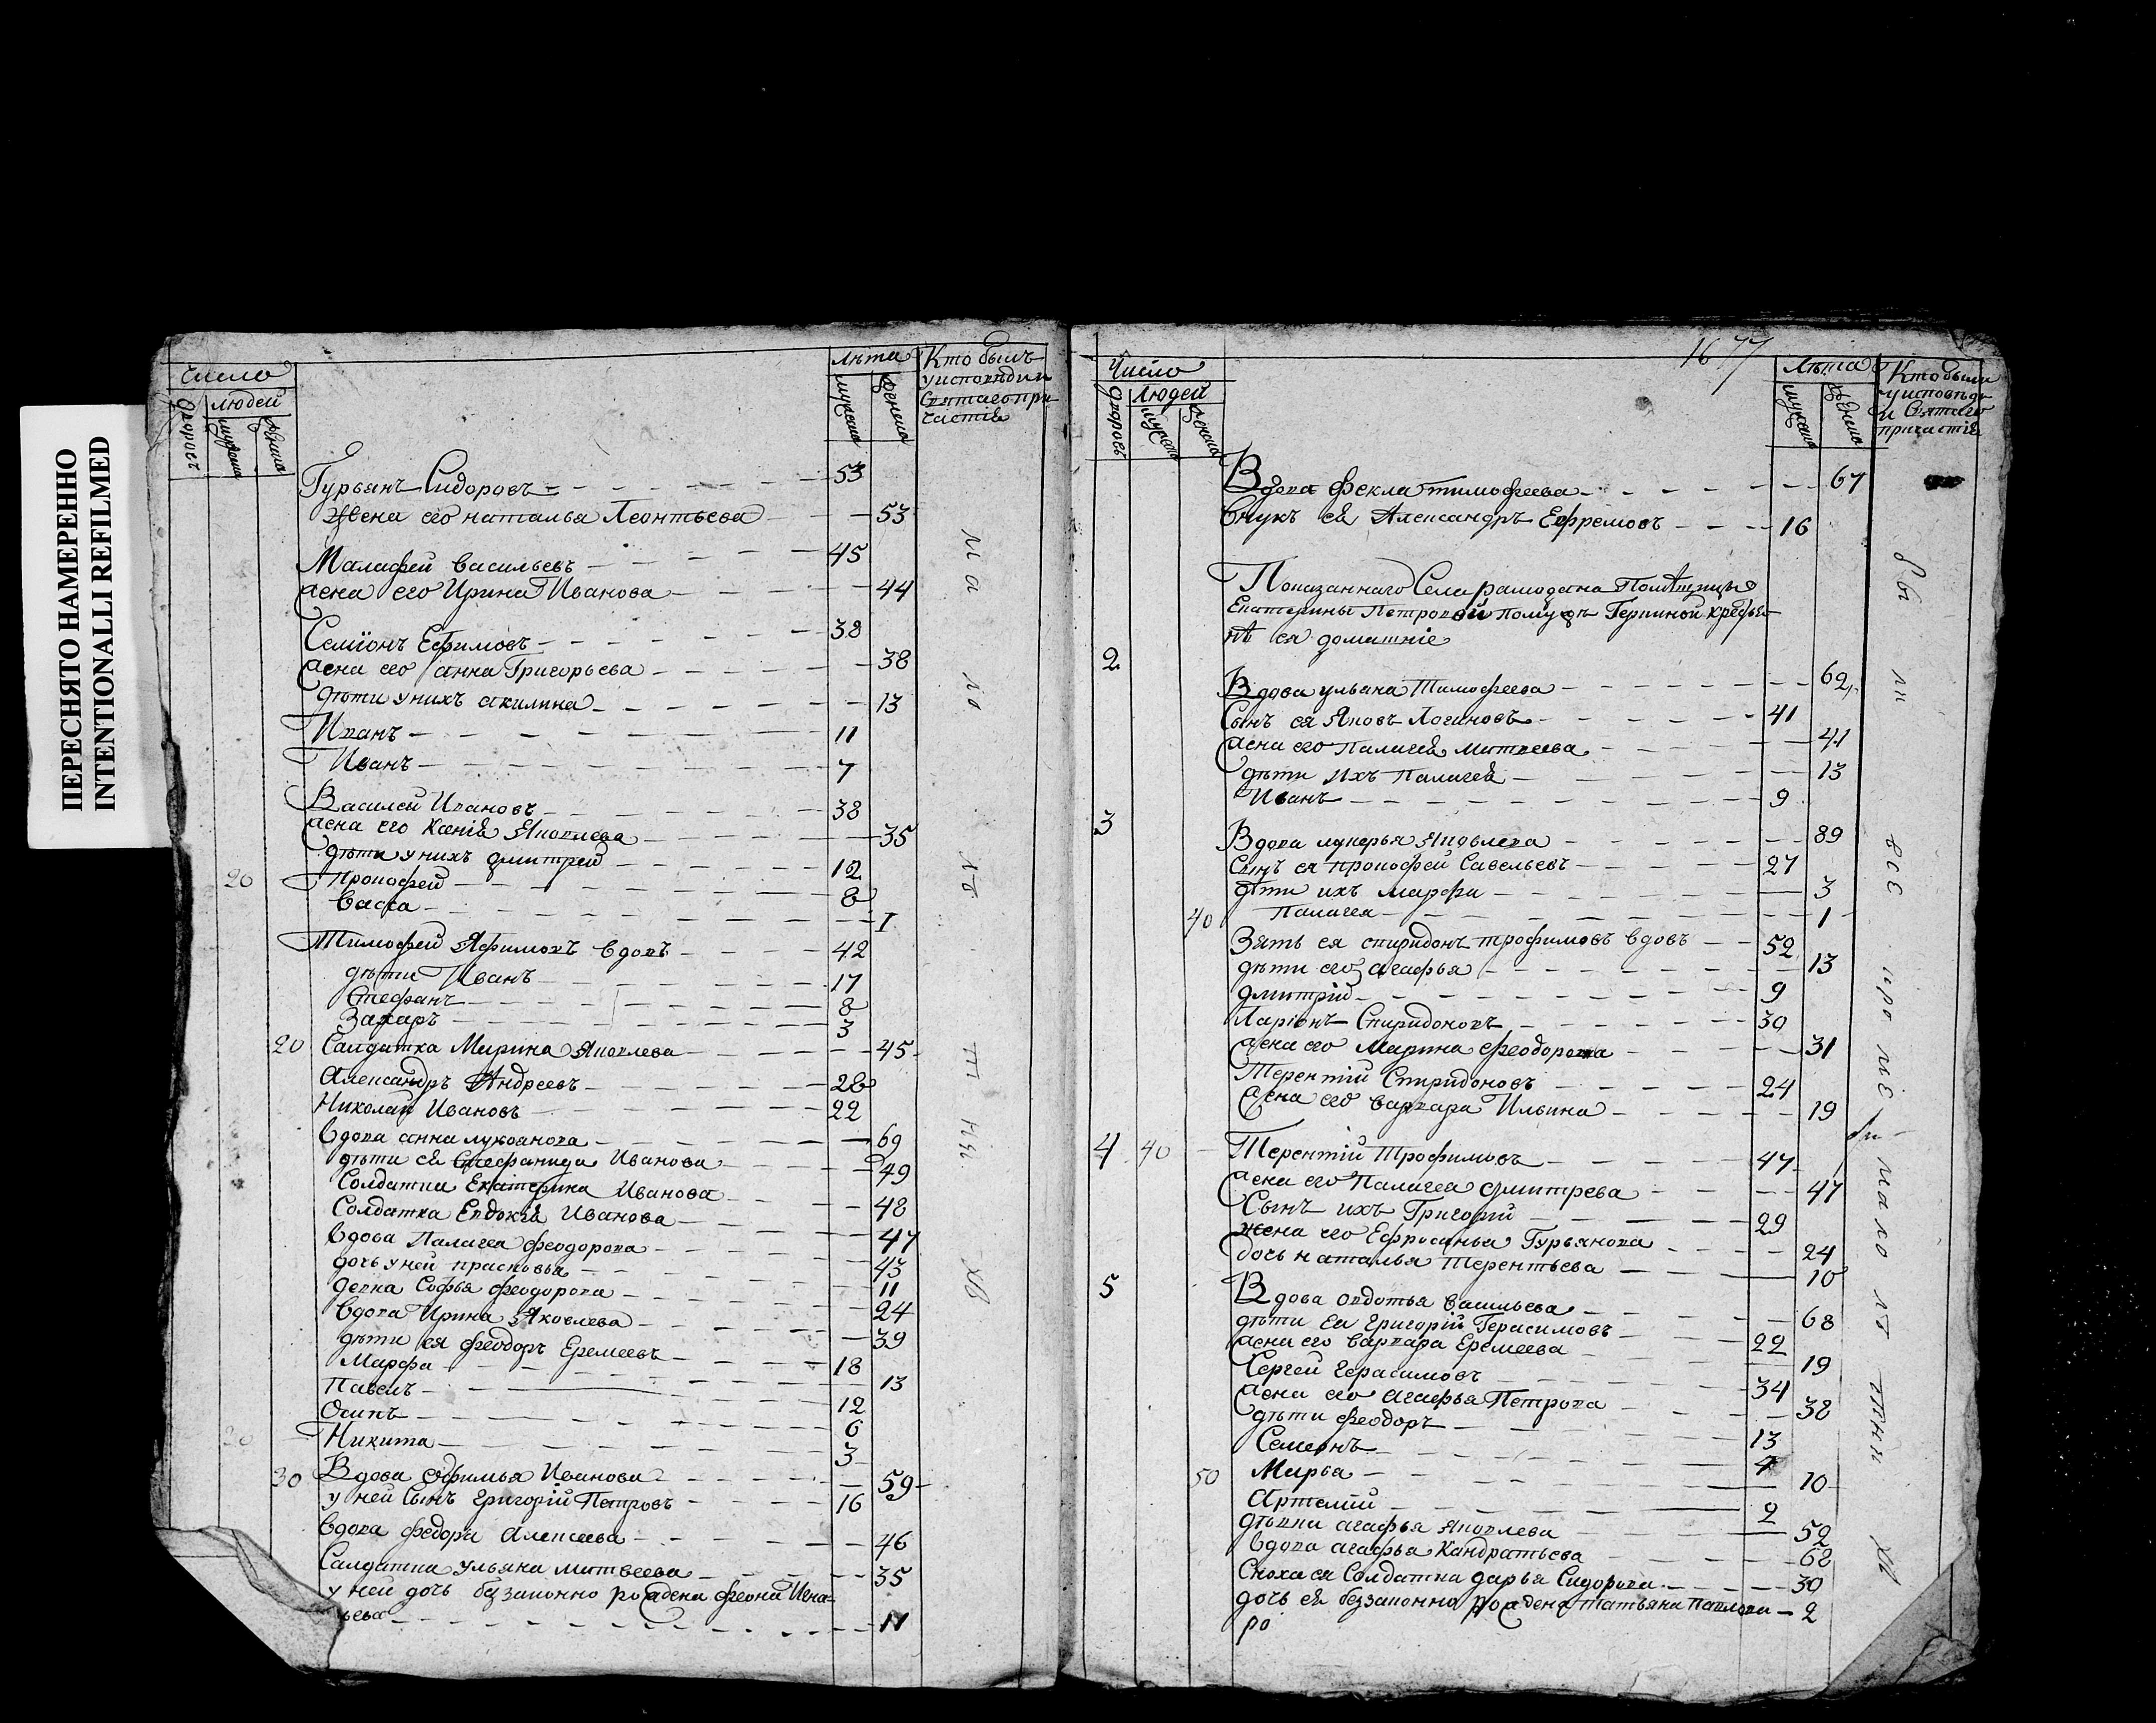 ПЕРЕСНЯТО НАМЕРЕННО
INTENTIONALLI REFILMED
Число
людей
Дворовъ
мужеска
женска
Лѣта
мужеска
женска
Кто былъ
у исповѣди и
Святаго при
частія
Гурьянъ Сидоровъ 53
Жена его наталья Леонтьева 53
Малафей васильевъ 45
жена его Ирина Иванова 44
Семіонъ Ефимовъ 38
жена его анна Григорьева 38
дѣти у нихъ акилина 13
Иванъ 11
Иванъ 7
Василей Ивановъ 38
жена его Ксенія Яковлева 35
дѣти у нихъ дмитрей 12
20 Прокофей 8
васса 1
Тимофей Яфимовъ вдовъ 42
дѣти Иванъ 17
Стефанъ 8
Захаръ 3
20 Салдатка Марина Яковлева 45
Александръ Андреевъ 28
Николай Ивановъ 22
вдова анна лукоанова 69
дѣти ея Стефанида Иванова 49
Солдатка Екатерина Иванова 48
Солдатка Евдокія Иванова 47
вдова Палагея феодорова 43
дочь у ней прасковья 11
девка Софья феодорова 24
вдова Ирина Яковлева 39
дѣти ея феодоръ Еремеевъ 18
Марфа 13
Павелъ 12
Осипъ 6
30 Никита 3
30 Вдова Офимья Иванова 59
у ней Сынъ григорій Петровъ 16
вдова федора Алексеева 46
Салдатка ульяна матвеева 35
у ней дочь беззаконно рождена феона Игна-
ьева 11
ма ло лѣ т ны хъ
1677
Число
людей
Дворовъ
мужеска
женска
Лѣта
мужеска
женска
Кто были
у исповѣди
и Святаго
причастія
Вдова фекла тимофеева 67
внукъ ея Александръ Ефремовъ 16
Показаннаго Села рамодана Помѣщицы
Екатерины Петровой крестья-
нѣ ея домашніе
2
Вдова ульяна Тимофеева 62
Сынъ ея Яковъ Логиновъ 41
жена его Палагея матвеева 41
дѣти ихъ Палагея 13
Иванъ 9
3 Вдова лукерья Яковлева 89
Сынъ ея прокофей Савельевъ 27
дѣти ихъ марфа 3
40 Палагея 1
Зять ея спиридонъ трофимовъ вдовъ 52
дѣти его агафья 13
дмитрій 9
Ларіонъ Спиридоновъ 30
жена его Марина феодорова 31
Терентій Спиридоновъ 24
жена его варвара Ильина 19
4 40 Терентій Трофимовъ 47
жена его Палагея дмитрева 47
Сынъ ихъ Григорій 29
жена его Ефросинья Гурьянова 24
дочь наталья терентьева 10
5 Вдова овдотья васильева 68
дѣти Ея григорій Герасимовъ 22
жена его варвара Еремеева 19
Сергей герасимовъ 34
жена его агафья Петрова 38
дѣти феодоръ 13
Семенъ 4
50 Марья 10
Артемій 2
дѣвка агафья Яковлева 52
вдова агафья Кандратьева 62
Сноха ея Солдатка дарья Сидорова 30
дочь ея беззаконно рождена татьяна Павлова 2
ро
бы ли все кро ме мало лѣ тны хъ